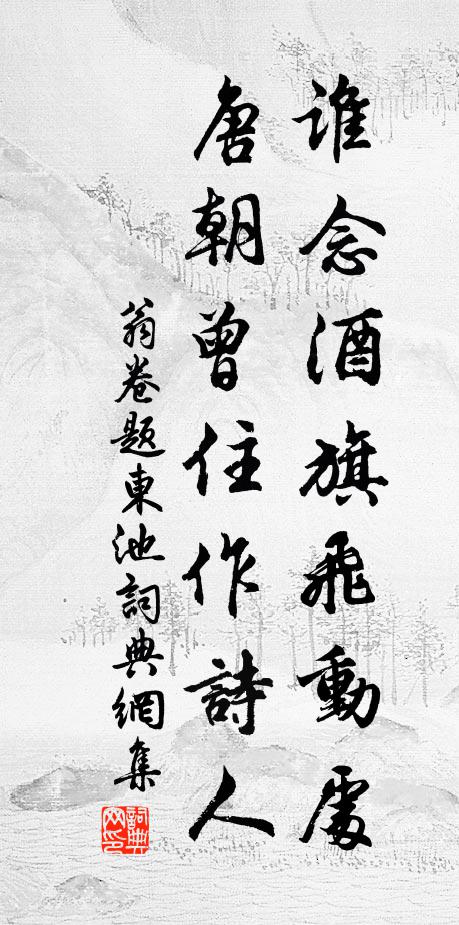 誰念酒旗飛動處
唐朝曾住作詩人
翁卷題東池詞典網集
詞典网印